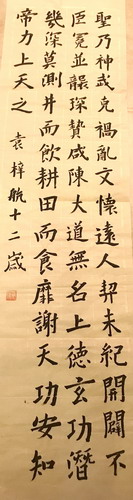 聖乃神武克禍亂文懷遠人契未紀開闢不
臣冕並琛贄咸陳大道無名上德玄功潛
幾深莫測井而飲耕田而食靡謝天功安知
帝力上天之
袁梓航十二歲